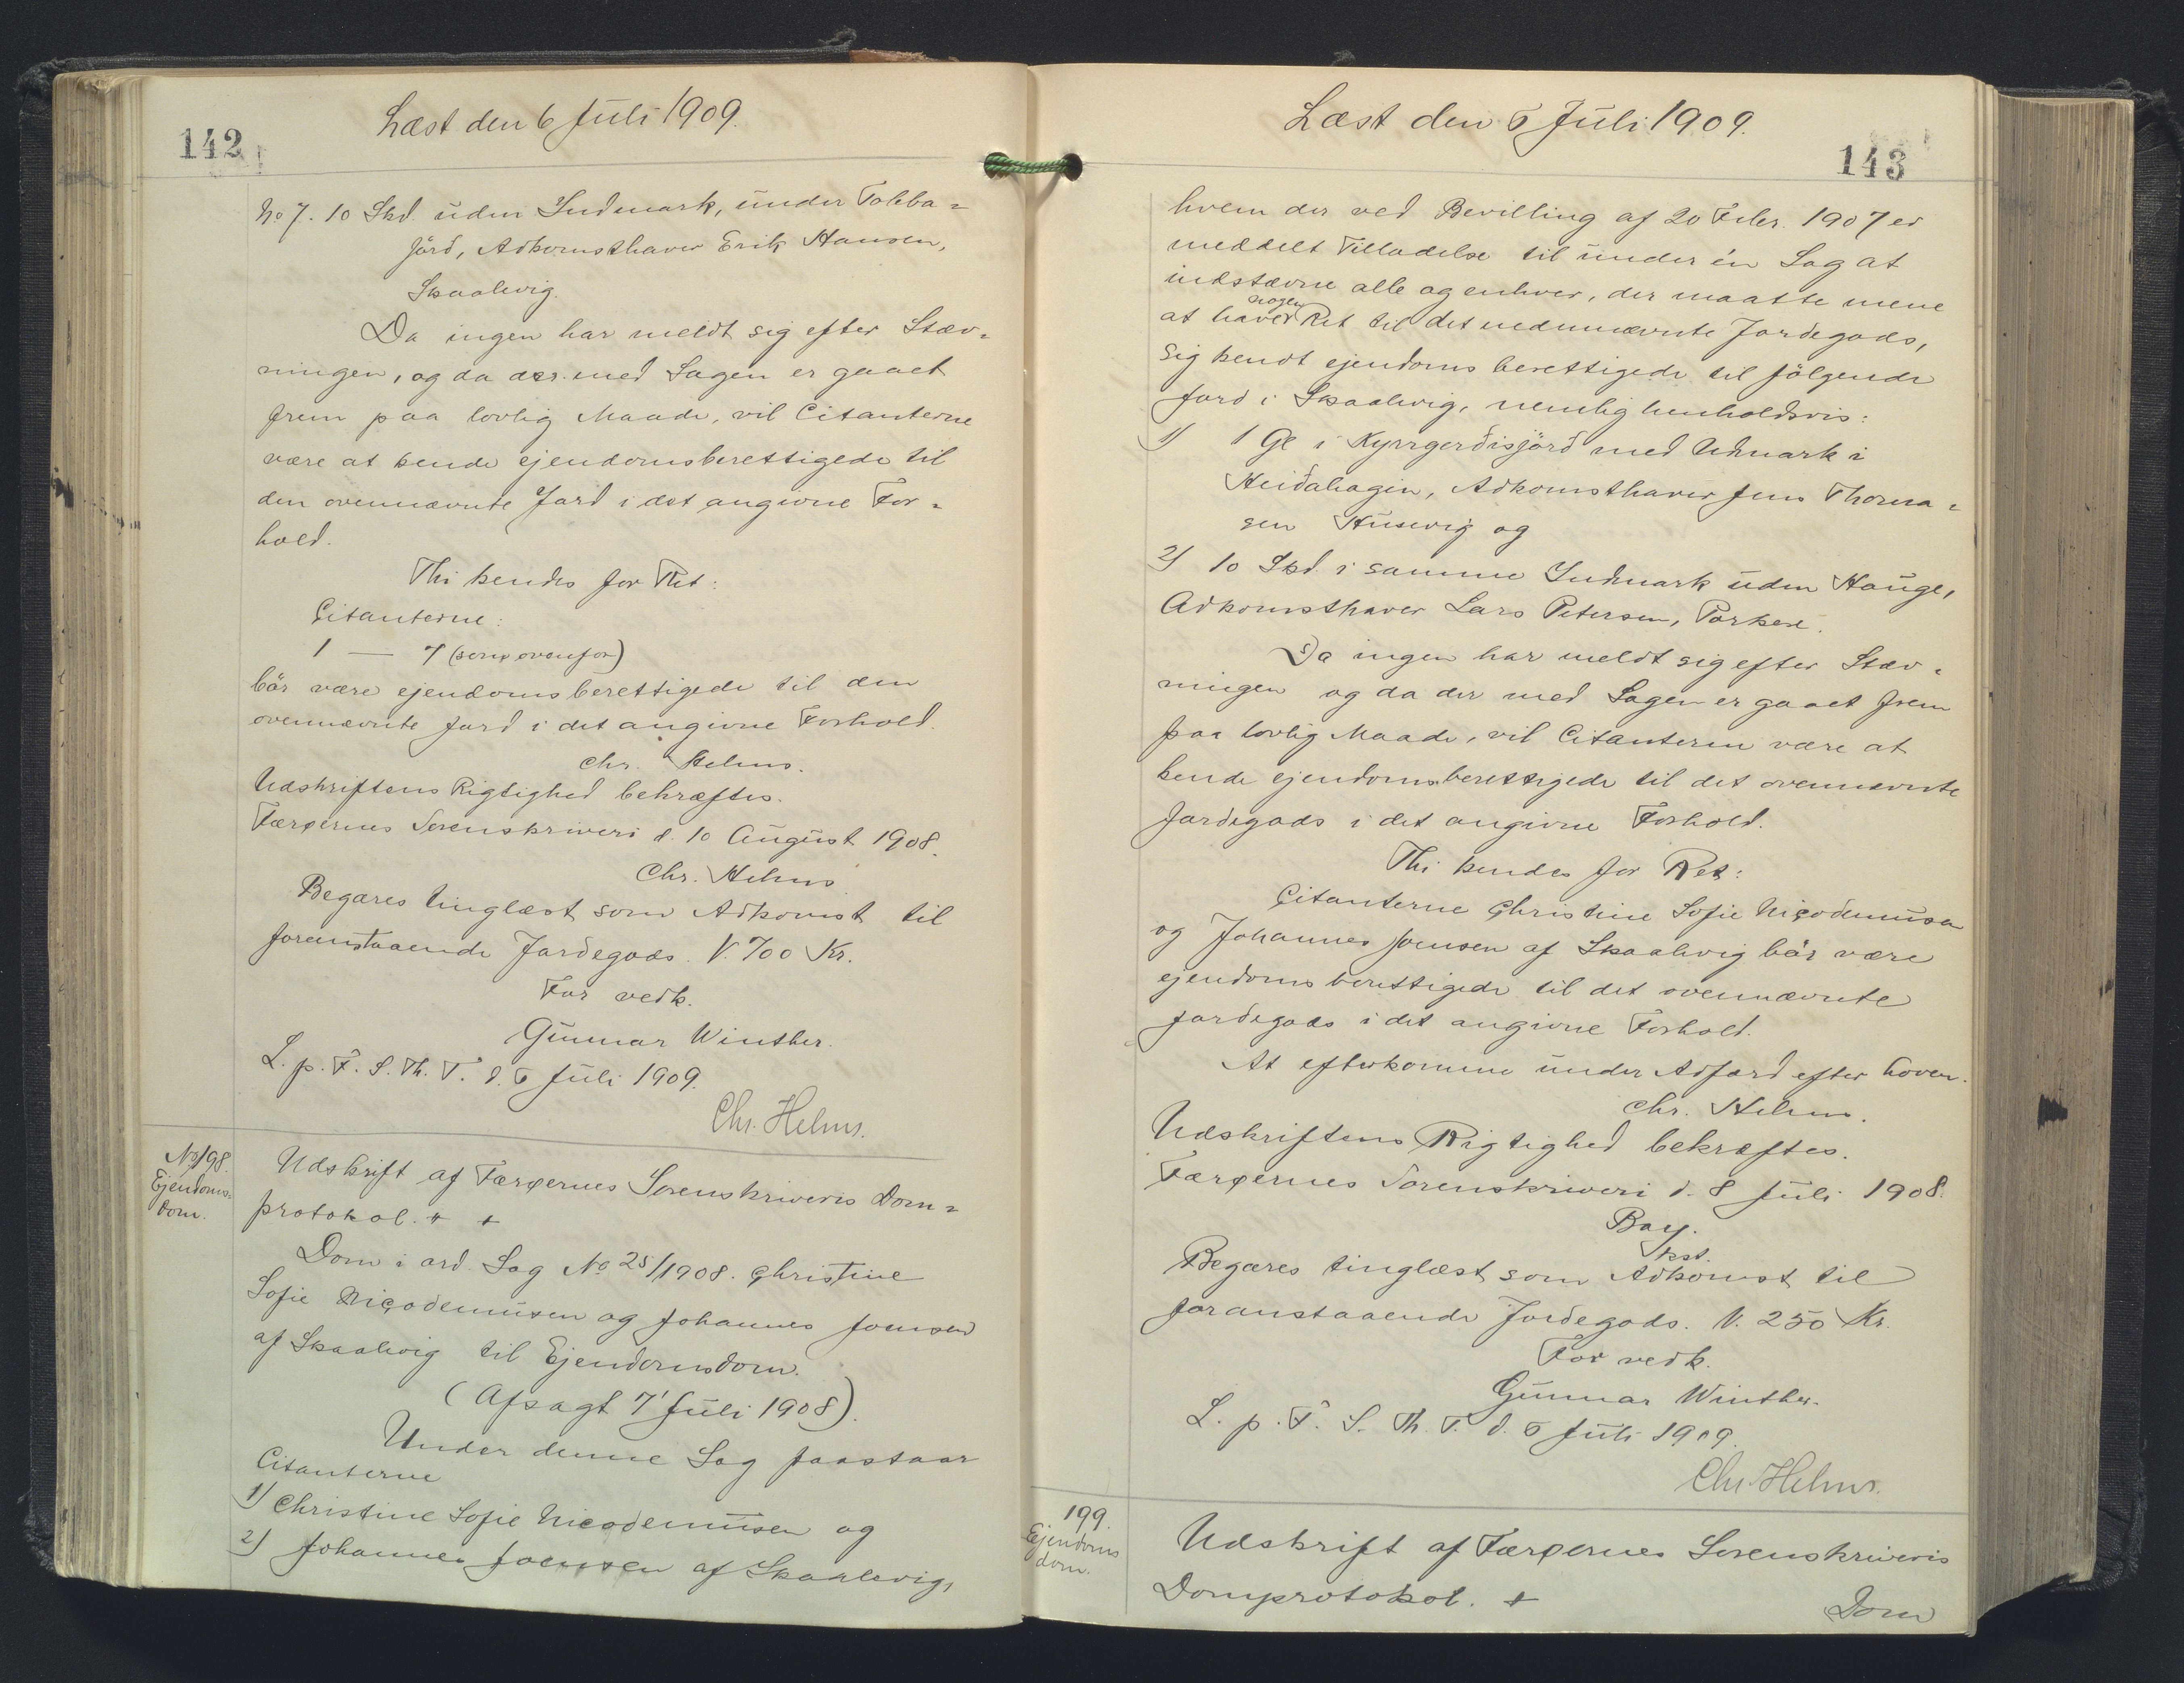 142
Læst den 6 Juli 1909.
No 7. 10 Skd. uden Indmark, under Tobba=
jörd, Adkomsthaver Erik Hansen,
Skaalevig.
Da ingen har meldt sig efter Stæv=
ningen, og da der med Sagen er gaaet
frem paa lovlig Maade, vil Citanterne
være at kende ejendomsberettigede til
den ovennævnte Jord i det angivne For=
hold.
Thi kendes for Ret:
Citanterne:
1 — 7 (som ovenfor)
bör være ejendomsberettigede til den
ovennævnte Jord i det angivne Forhold.
Chr. Helms.
Udskriftens Rigtighed bekræftes.
Færøernes Sorenskriveri d. 10 August 1908.
Chr. Helms.
Begæres tinglæst som Adkomst til
foranstaaende Jordegods. V. 700 Kr.
For vedk.
Gunnar Winther.
L. p. F. S. Th. T. d. 6 Juli 1909.
Chr. Helms.
No 198.
Ejendoms=
dom.
Udskrift af Færøernes Sorenskriveris Dom=
protokol. + +
Dom i ord. Sag No 25/1908. Christine
Sofie Nicodemusen og Johannes Joensen
af Skaalevig til Ejendomsdom.
(Afsagt 7' Juli 1908).
Under denne Sag paastaar
Citanterne
1) Christine Sofie Nicodemusen og
2) Johannes Joensen af Skaalevig,
Læst den 6 Juli 1909.
143
hvem der ved Bevilling af 20 Febr. 1907 er
meddelt Tilladelse til under én Sag at
indstævne alle og enhver, der maatte mene
at have nogen Ret til det nedennævnte Jordegods,
sig kendt ejendomsberettigede til følgende
Jord i Skaalevig, nemlig henholdsvis:
1) 1 Gl i Kyrrgerdisjörd med Udmark i
Heidahagin, Adkomsthaver Jens Thoma=
sen Husevig og
2) 10 Skd. i samme Indmark uden Hauge,
Adkomsthaver Lars Petersen, Porkere.
Da ingen har meldt sig efter Stæv=
ningen og da der med Sagen er gaaet frem
paa lovlig Maade, vil Citanterne være at
kende ejendomsberettigede til det ovennævnte
Jordegods i det angivne Forhold.
Thi kendes for Ret:
Citanterne Christine Sofie Nicodemusen
og Johannes Joensen af Skaalevig bör være
ejendomsberettigede til det ovennævnte
Jordegods i det angivne Forhold.
At efterkomme under Adfærd efter Loven.
Chr. Helms.
Udskriftens Rigtighed bekræftes.
Færøernes Sorenskriveri d. 8 Juli 1908.
Bay.
kst.
Begæres tinglæst som Adkomst til
foranstaaende Jordegods. V. 250 Kr.
For vedk.
Gunnar Winther.
L. p. F. S. Th. T. d. 6 Juli 1909.
Chr. Helms.
199.
Ejendoms
dom.
Udskrift af Færøernes Sorenskriveris
Domprotokol. +
Dom